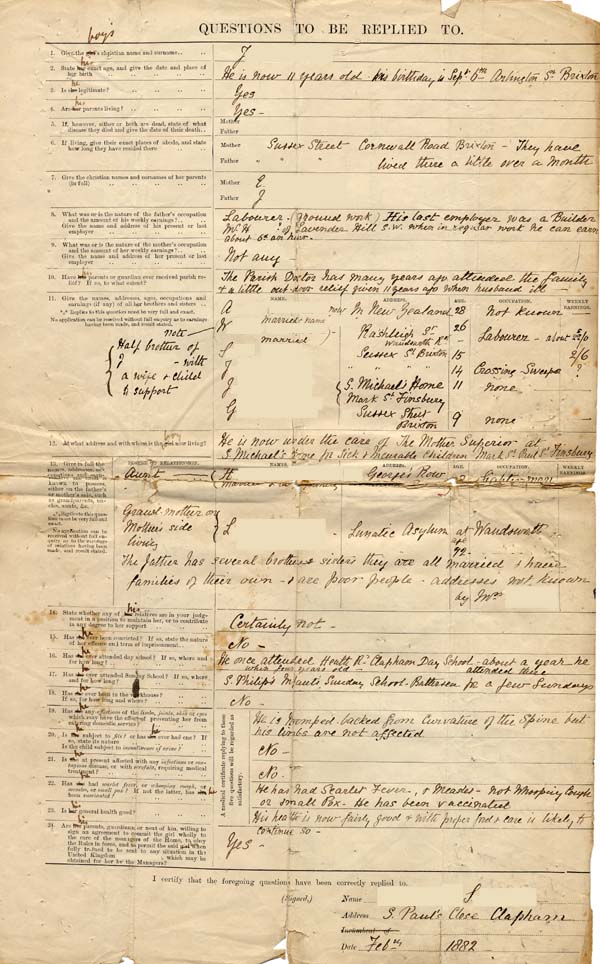 QUESTIONS TO BE REPLIED TO.
boy's
1. Give the girl's christian name and surname
J
his
2. State her exact age, and give the date and place of her birth
He is now 11 years old. his birthday is Sept 6th Arlington St. Brixton
he
3. Is she legitimate?
Yes
his
4. Are her parents living?
Yes -
5. If, however, either or both are dead, state of what disease they died and give the date of their death
Mother
Father
6. If living, give their exact places of abode, and state how long they have resided there
Mother Sussex Street Cornwall Road Brixton - They have
Father " " " lived there a little over a month
7. Give the christian names and surnames of her parents (in full)
Mother E.
Father J
8. What was or is the nature of the father's occupation and the amount of his weekly earnings?
Give the name and address of his present or last employer
Labourer - (ground work) His last employer was a Builder
Mr H of Lavender Hill S.W. when in regular work he can earn
about 6d an hour.
9. What was or is the nature of the mother's occupation and the amount of her weekly earnings?
Give the name and address of her present or last employer
Not any -
his
10. Have her parents or guardian ever received parish relief? If so, to what extent?
The Parish Doctor has many years ago attended the family
& a little out-door relief given 11 years ago when husband ill -
11. Give the names, addresses, ages, occupations and earnings (if any) of all her brothers and sisters
Replies to this question must be very full and exact.
No application can be received without full enquiry as to earnings having been made, and result stated.
NAME. ADDRESS. AGE. OCCUPATION. WEEKLY EARNINGS.
A married name now In New Zealand 28 Not known -
W married) - Rashleigh St 26
Wandsworth Rd Labourer - about 25/0
S Sussex St Brixton 15 2/6
J " " " 14 Crossing Sweeper ?
J S. Michael's Home 11 none
Mark St Finsbury
G Sussex Street 9 none -
Brixton
note -
Half brother of
J - with
a wife & child
to support
boy
12. At what address and with whom is the girl now living?
He is now under the care of The Mother Superior at
S. Michael's Home for Sick & Incurable Children Mark St. Paul St. Finsbury
13. Give in full the names, addresses
DEGREE OF RELATIONSHIP. NAMES. ADDRESS. AGE. OCCUPATION. WEEKLY EARNINGS.
Aunt H George's Row
Grand mother on
Mother's side
living
L - Lunatic Asylum at Wandsworth -
age
72 -
The father has several brothers & sisters they are all married & have
families of their own - & are poor people - addresses not known
by Mrs
his
14. State whether any of her relatives are in your judgment in a position to maintain her, or to contribute in any degree to her support
Certainly not -
he
15. Has she ever been convicted? If so, state the nature of her offence and term of imprisonment
No -
he
16. Has she ever attended day school? If so, where and for how long?
He once attended Heath Rd. Clapham Day School - about a year he
when four years old attended there
he
17. Has she ever attended Sunday School? If so, where, and for how long?
S. Philip's Infants Sunday School. Battersea for a few Sundays
he
18. Has she ever been in the workhouse? If so, for how long and where?
No -
A medical certificate replying to these five questions will be regarded as satisfactory.
he
19. Has she any affections of the limbs, joints, skin or eyes which may have the effect of preventing her from entering domestic service?
He is humped-backed from curvature of the Spine but
his limbs are not affected
he
20. Is she subject to fits? or has she ever had one? If so, state its nature
Is the child subject to incontinence of urine?
No -
he
21. Is she at present affected with any infectious or contagious disease, or with scrofula, requiring medical treatment?
No.
he
22. Has she had scarlet fever, or whooping cough, or measles, or small pox? If not the latter, has she been vaccinated?
He has had Scarlet Fever, & Measles - not Whooping Cough
or small Pox - He has been vaccinated
his
23. Is her general health good?
His health is now fairly good & with proper food & care is likely to
continue so -
his
24. Are her parents, guardians, or next of kin, willing to sign an agreement to commit the girl wholly to the care of the managers of the Home, to obey the Rules in force, and to permit the said girl when fully trained to be sent to any situation in the United Kingdom which may be obtained for her by the Managers?
Yes -
I certify that the foregoing questions have been correctly replied to.
(Signed.) Name S.
Address S. Paul's Close Clapham
Incumbent of
Date Feby 1882